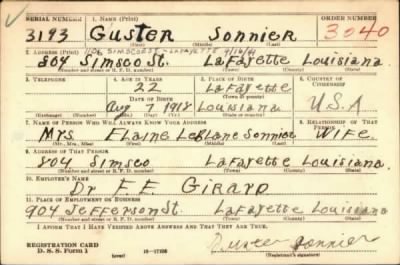 SERIAL NUMBER 1. NAME (Print) ORDER NUMBER
3193 GUSTER SONNIER 3040
(First) (Middle) (Last)
2. ADDRESS (Print) 1106 SIMSCOE ST - LAFAYETTE 9/16/41
804 Simsco St. LaFayette Louisiana
(Number and street or R. F. D. number) (Town) (County) (State)
3. TELEPHONE 4. AGE IN YEARS 5. PLACE OF BIRTH 6. COUNTRY OF CITIZENSHIP
22 LaFayette
DATE OF BIRTH (Town or county)
Aug 7 1918 Louisiana U.S.A
(Exchange) (Number) (Mo.) (Day) (Yr.) (State or country)
7. NAME OF PERSON WHO WILL ALWAYS KNOW YOUR ADDRESS 8. RELATIONSHIP OF THAT PERSON
Mrs. Elaine LeBlanc Sonnier WIFE
(Mr., Mrs., Miss) (First) (Middle) (Last)
9. ADDRESS OF THAT PERSON
804 Simsco LaFayette Louisiana.
(Number and street or R. F. D. number) (Town) (County) (State)
10. EMPLOYER'S NAME
Dr F. E. GIRARD
11. PLACE OF EMPLOYMENT OR BUSINESS
904 Jefferson St. LaFayette Louisiana
(Number and street or R. F. D. number) (Town) (County) (State)
I AFFIRM THAT I HAVE VERIFIED ABOVE ANSWERS AND THAT THEY ARE TRUE.
REGISTRATION CARD
D. S. S. Form 1 (over) Guster Sonnier
(Registrant's signature)